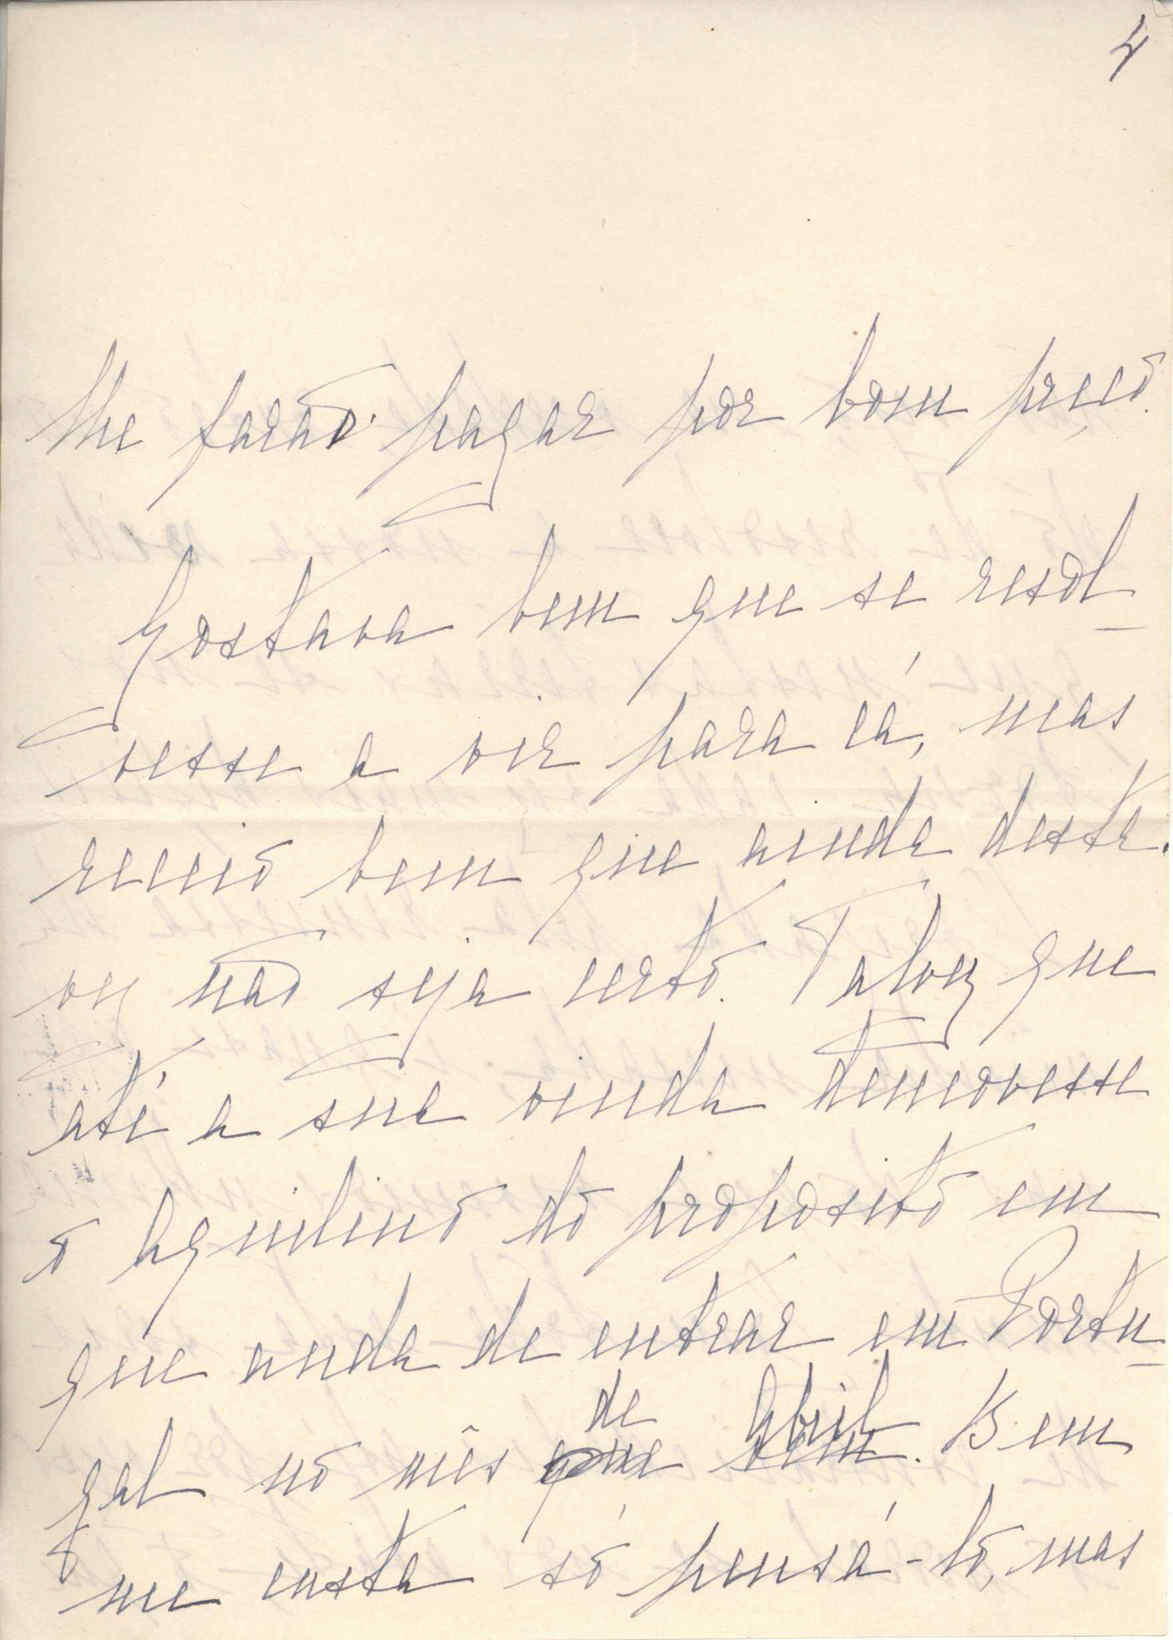 4
lhe farão pagar por bom preço.
Gostava bem que se resol-
vesse a vir para cá, mas
receio bem que ainda desta
vez não seja certo. Talvez que
até a sua vinda demovesse
o Aquilino do proposito em
que anda de entrar em Portu-
gal no mês de Abril. Bem
me custa só pensá-lo, mas